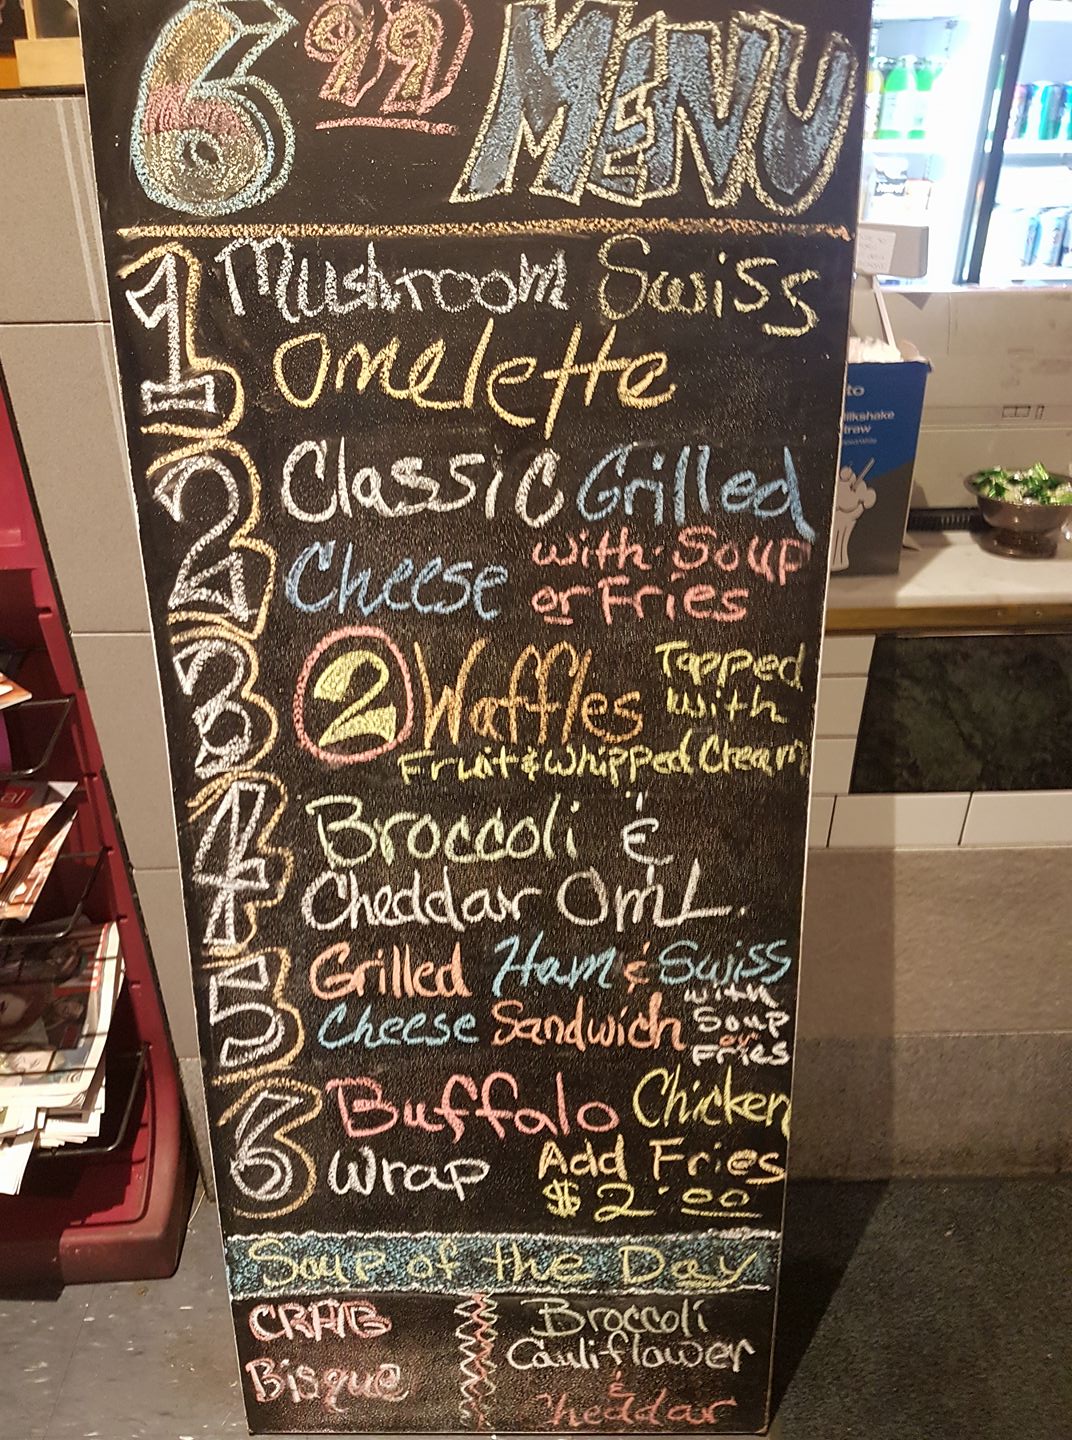 6 99 MENU
1 Mushroom Swiss
Omelette
2 Classic Grilled
Cheese with Soup
or Fries
3 2 Waffles Topped
with
Fruit & Whipped Cream
4 Broccoli &
Cheddar OmL.
5 Grilled Ham & Swiss
Cheese Sandwich with
Soup
or
Fries
6 Buffalo Chicken
Wrap Add Fries
$2.00
Soup of the Day
CRAB
Bisque
Broccoli
Cauliflower
&
Cheddar